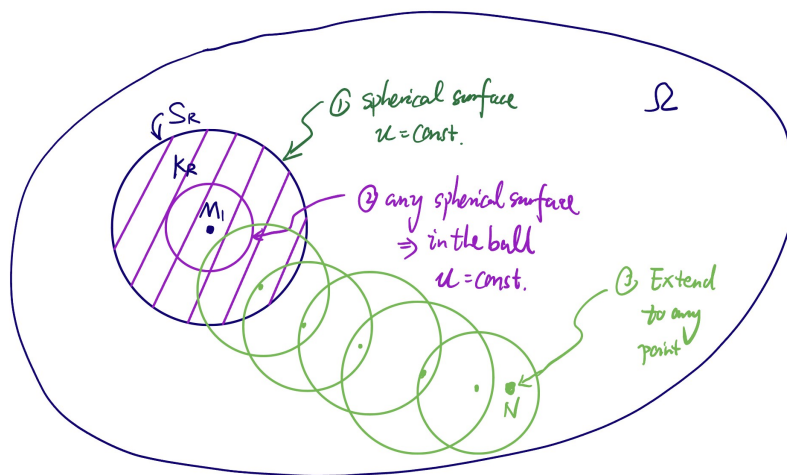 ① spherical surface
u = const.
Ω
S_R
K_R
M₁
② any spherical surface
⇒ in the ball
u = const.
③ Extend
to any
point
N